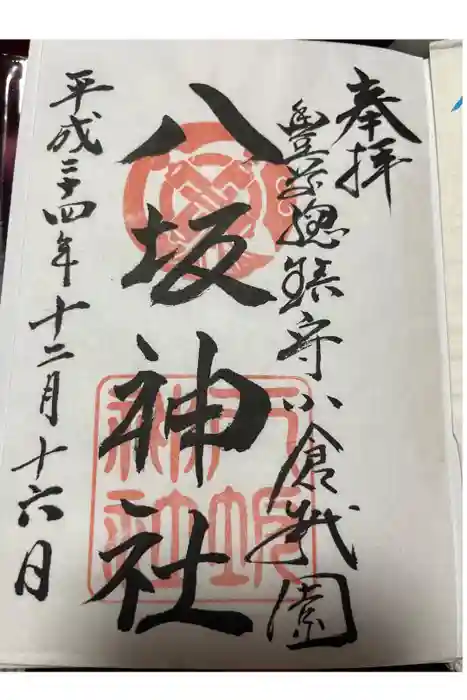 奉拝
豊前總鎮守小倉祇園
八坂神社
八坂
神社
平成二十四年十二月十六日